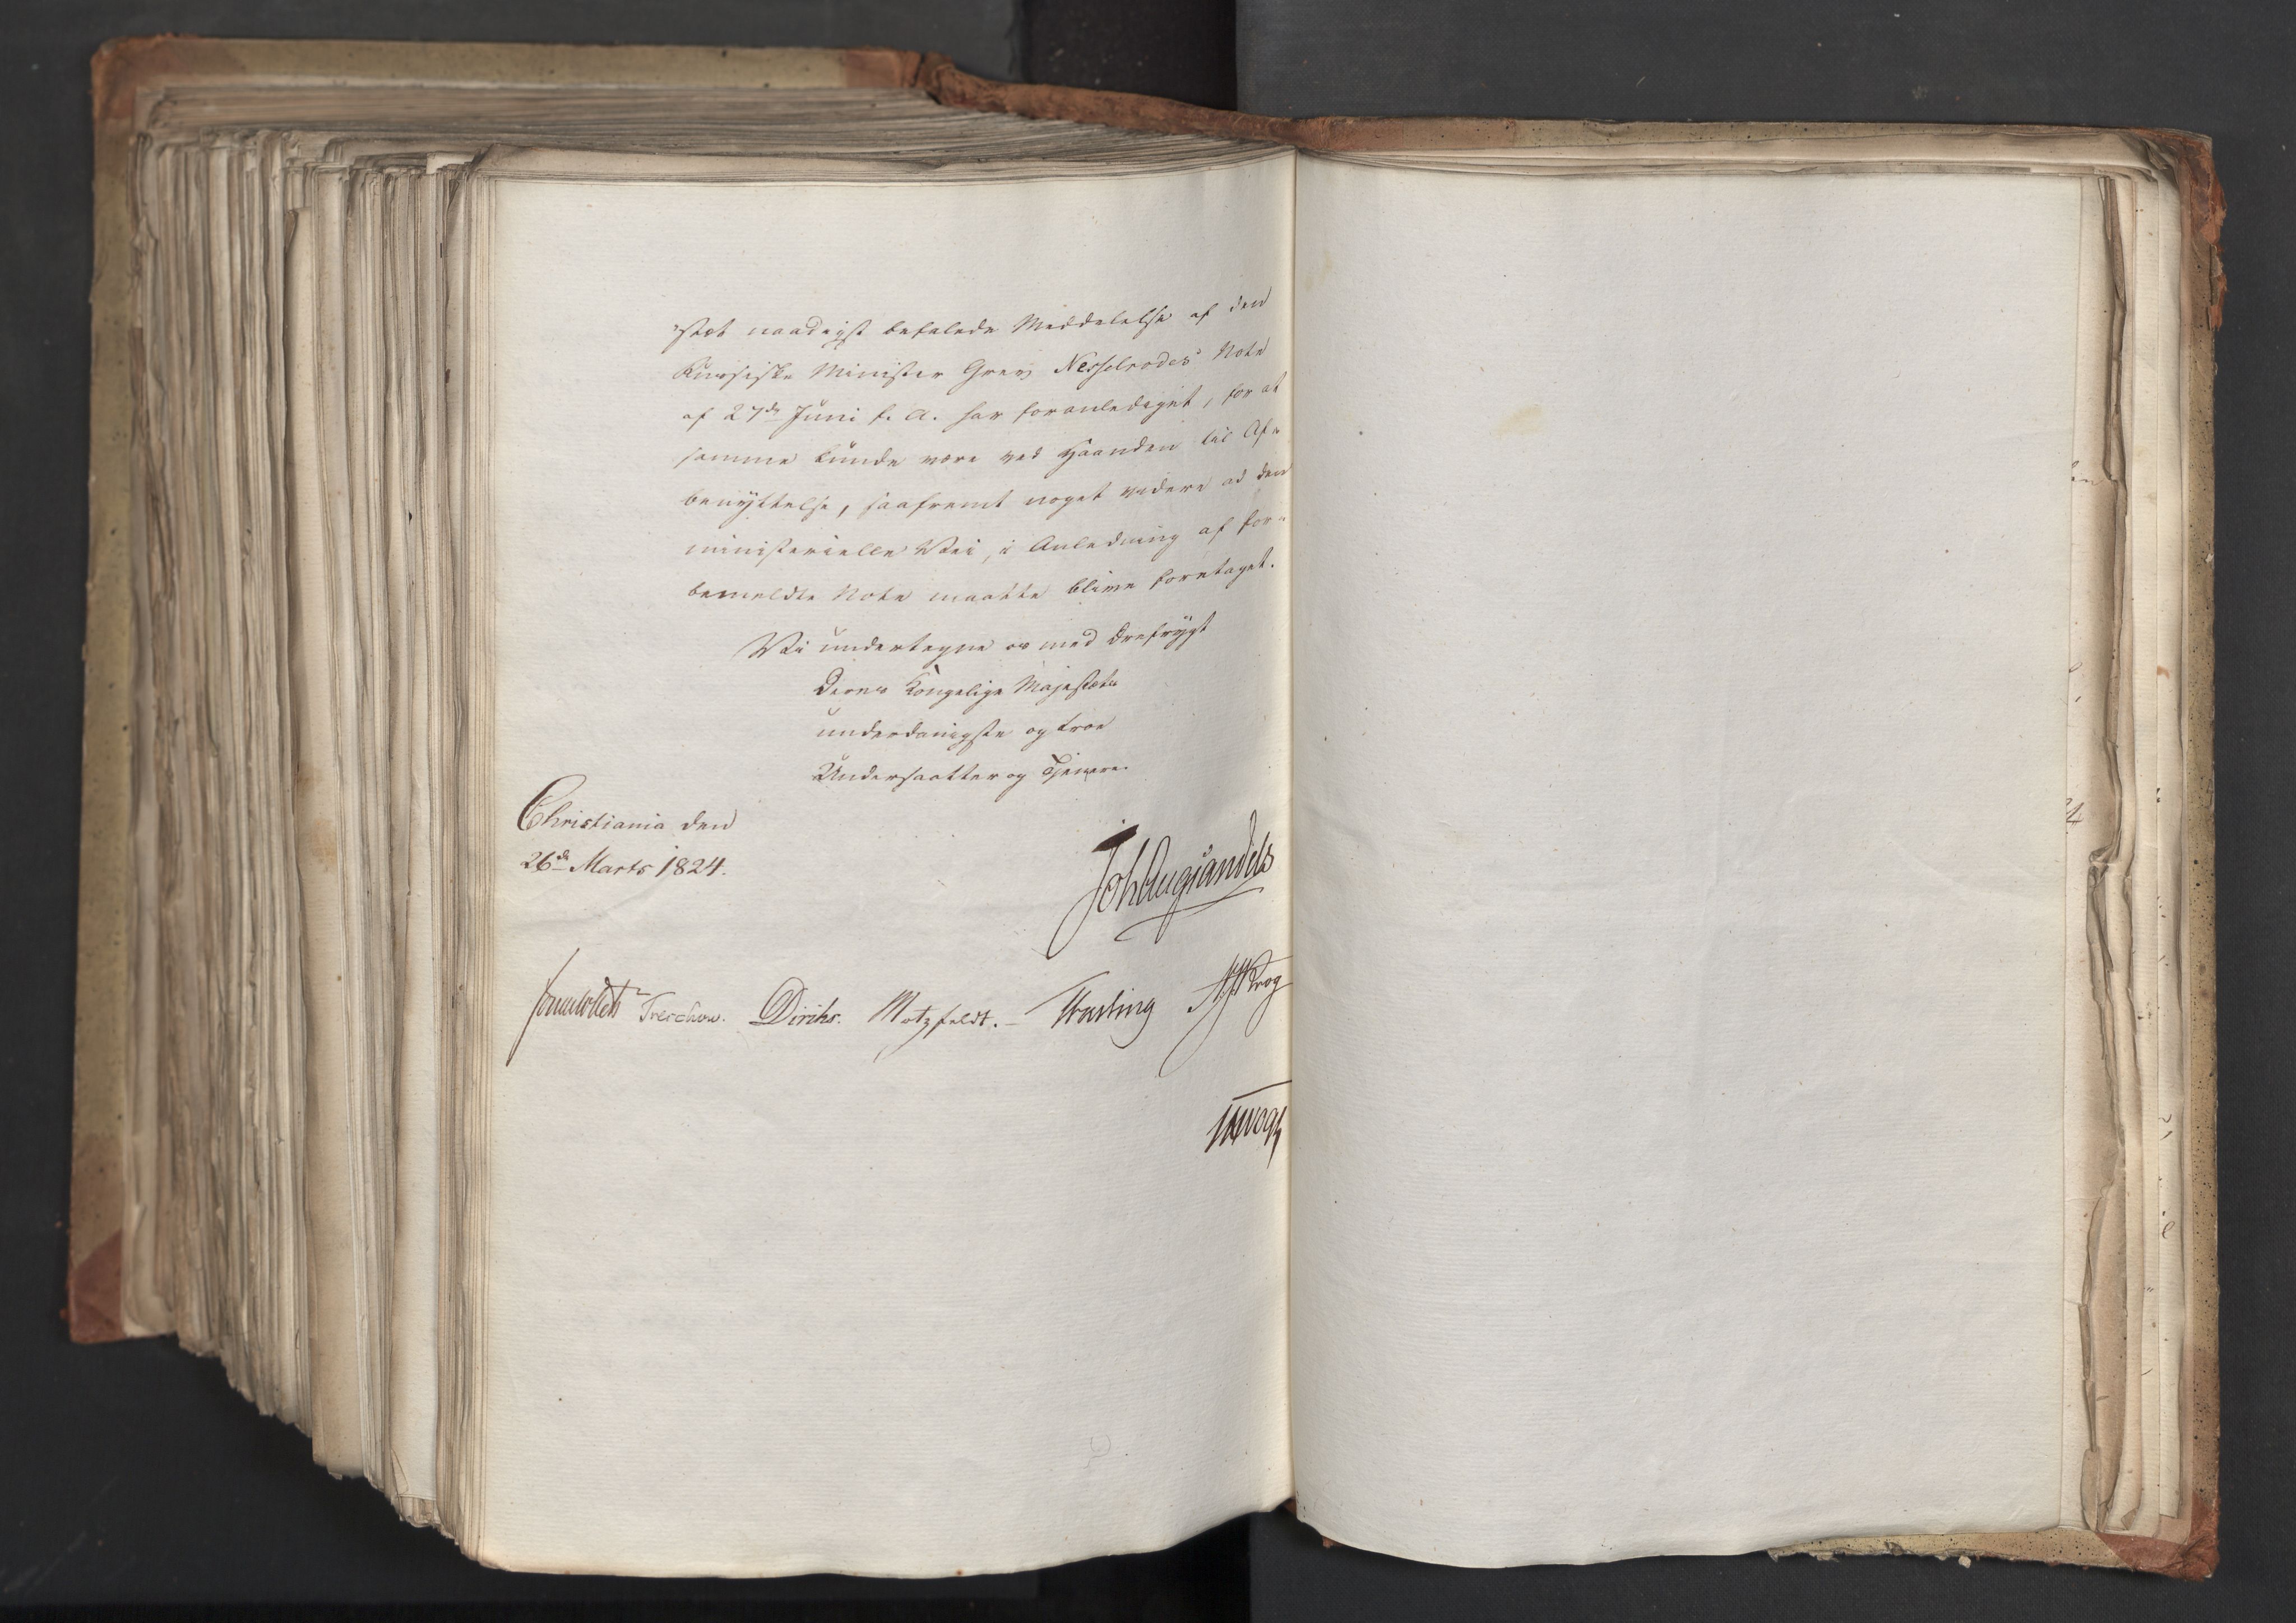 "stæt naadigst befalede Meddelelse af den
Russiske Minister Grev Nesselrodes Note
af 27de Juni f. A. har foranlediget, for at
samme kunde være ved Haanden til Af-
benyttelse, saafremt noget videre ad den
ministerielle Vei, i Anledning af for-
bemeldte Note maatte blive foretaget.
Vi undertegne os med Ærefrygt
Deres Kongelige Majestæts
underdanigste og troe
Undersaatter og Tjenere.
Christiania den
26de Marts 1824.
JohAugSandels
Sommerhielm Treschow. Diriks. Motzfeldt. Fasting AJKrog